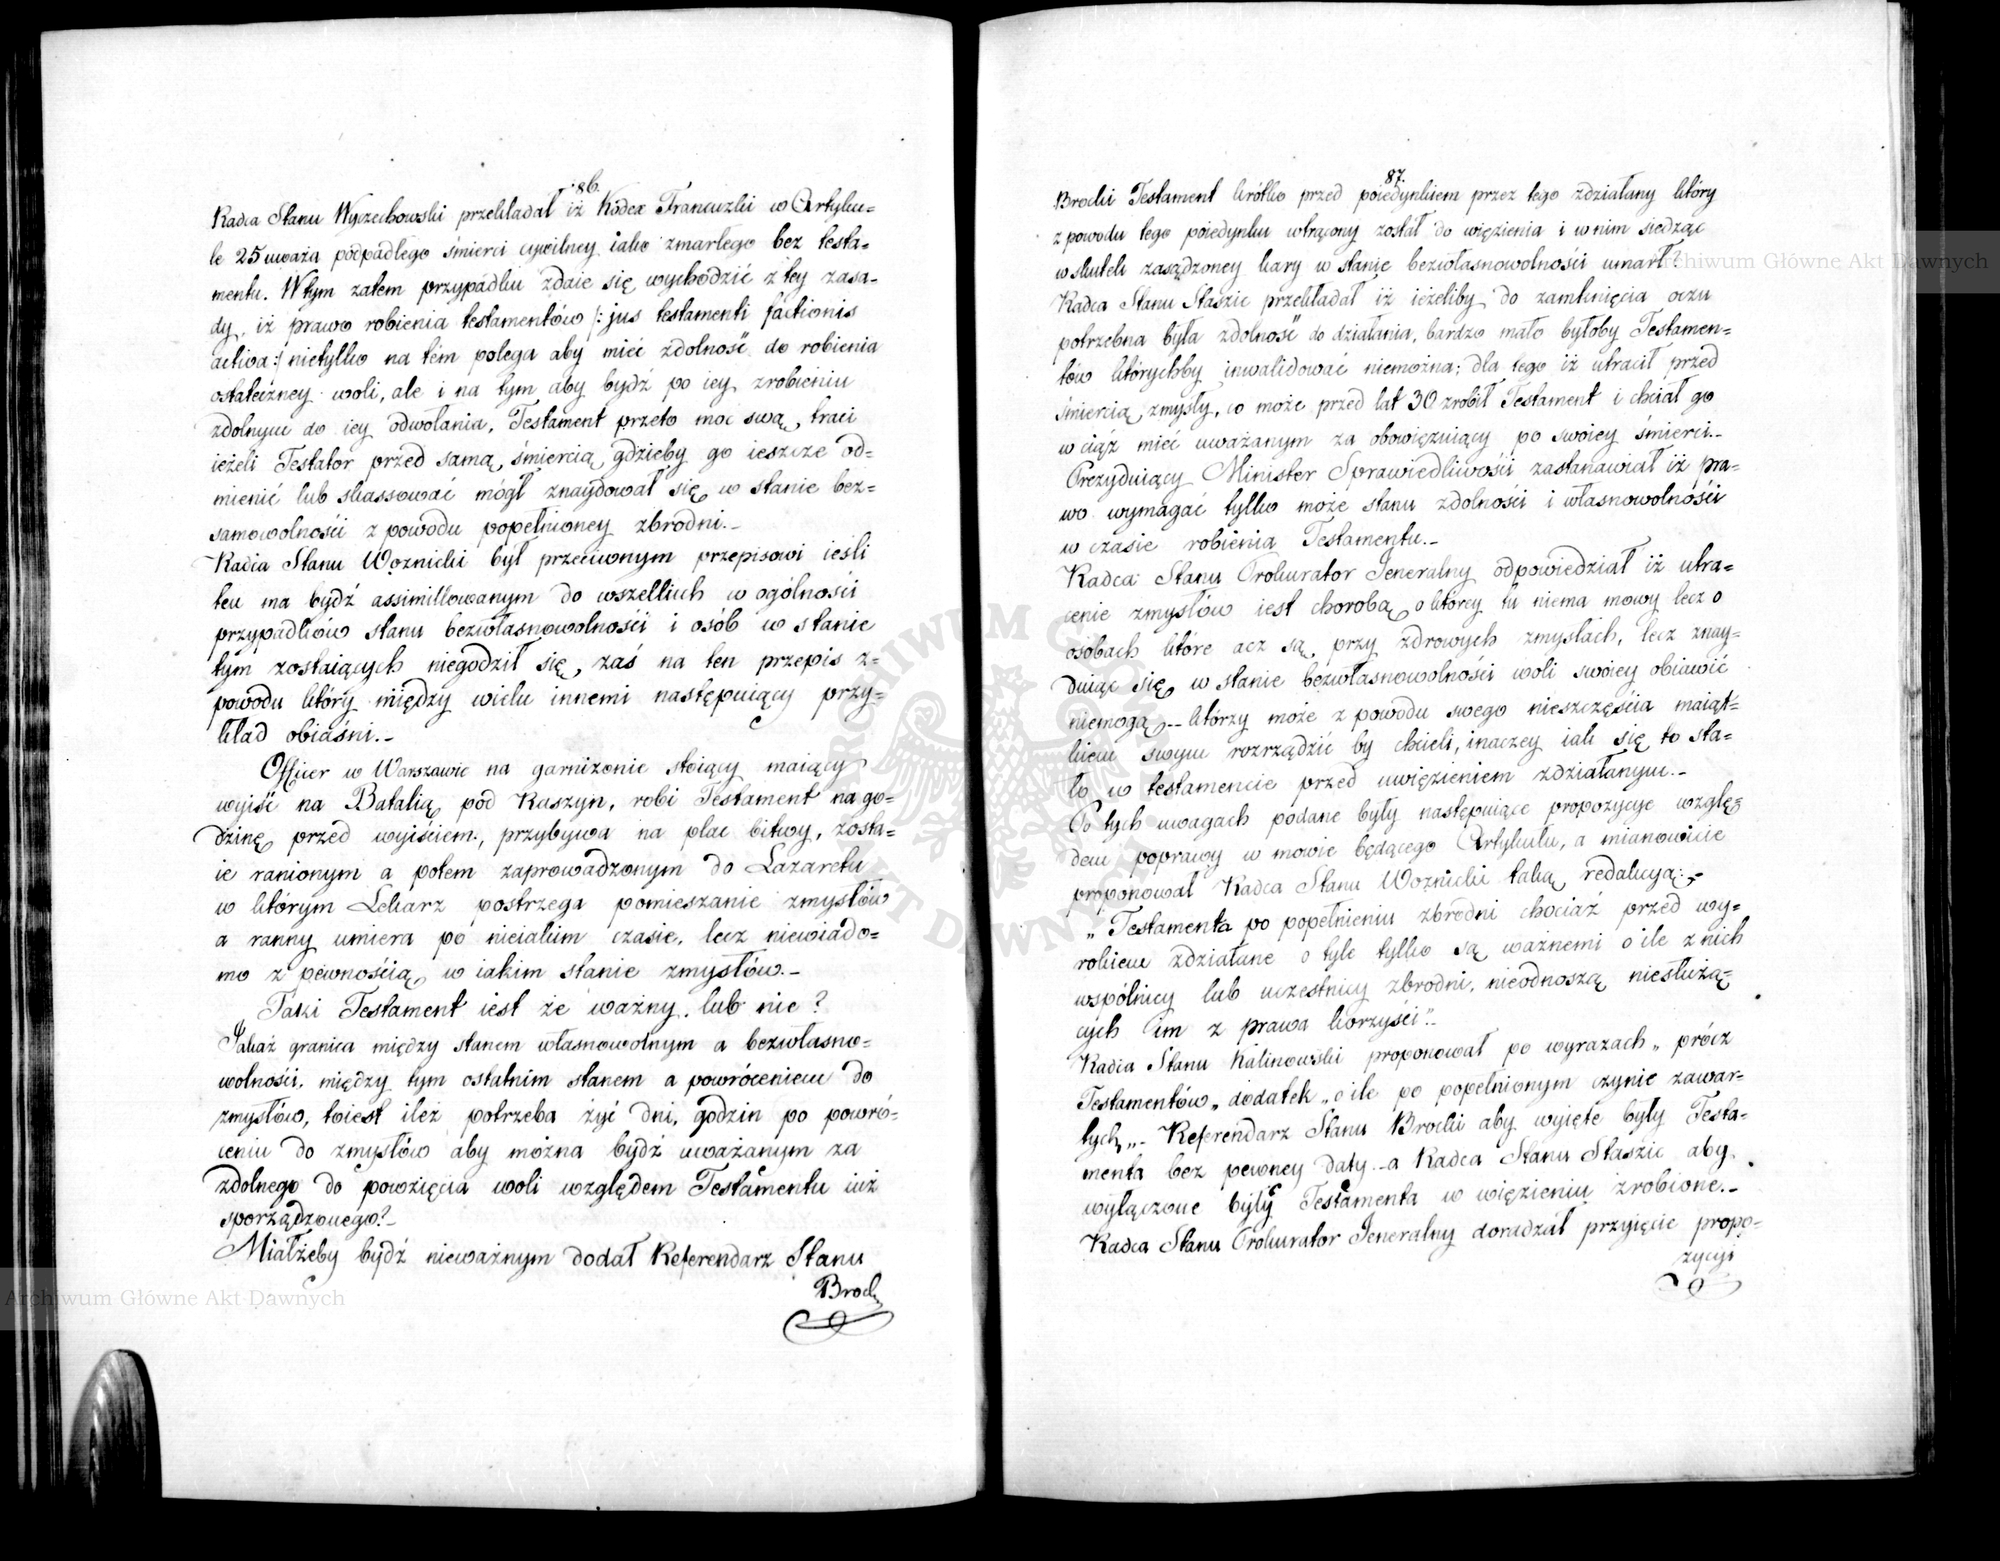 86.
Radca Stanu Wyczechowski przekładał iż Kodex Francuzki w Artyku=
le 25 uważa podpadłego śmierci cywilney iako zmarłego bez testa=
mentu. W tym zatem przypadku zdaie się wychodzić z tey zasa=
dy, iż prawo robienia testamentów /: jus testamenti factionis
activa :/ nietylko na tém polega aby mieć zdolność do robienia
ostateczney woli, ale i na tym aby bydź po iey zrobieniu
zdolnym do iey odwołania, Testament przeto moc swą traci
ieżeli Testator przed samą śmiercią gdzieby go ieszcze od=
mienić lub skassować mógł znaydował się w stanie bez=
samowolności z powodu popełnioney zbrodni._
Radca Stanu Woznicki był przeciwnym przepisowi ieśli
ten ma bydź assimillowanym do wszelkich w ogólności
przypadków stanu bezwłasnowolności i osób w stanie
tym zostaiących niegodził się zaś na ten przepis z=
powodu który między wielu innemi następuiący przy=
kład obiaśni._
Officer w Warszawie na garnizonie stoiący maiący
wyiść na Batalią pod Raszyn, robi Testament na go=
dzinę przed wyiściem, przybywa na plac bitwy, zosta=
ie ranionym a potem zaprowadzonym do Lazaretu
w którym Lekarz postrzega pomieszanie zmysłów
a ranny umiera po nieiakim czasie, lecz niewiado=
mo z pewnością w iakim stanie zmysłów._
Taki Testament iest że ważny, lub nie?
Jakaż granica między stanem własnowolnym a bezwłasno=
wolności, między tym ostatnim stanem a powróceniem do
zmysłów, toiest ileż potrzeba żyć dni, godzin po powró=
ceniu do zmysłów aby można bydź uważanym za
zdolnego do powzięcia woli względem Testamentu iuż
sporządzonego?_
Miałżeby bydź nieważnym dodał Referendarz Stanu
Brocki
87.
Brocki Testament krótko przed poiedynkiem przez tego zdziałany który
z powodu tego poiedynku wtrącony został do więzienia i w nim siedząc
w skutek zasądzoney kary w stanie bezwłasnowolności umarł?
Radca Stanu Staszic przekładał iż ieżeliby do zamknięcia oczu
potrzebna była zdolność do działania, bardzo mało byłoby Testamen=
tów którychby inwalidować niemożna; dla tego iż utracił przed
śmiercią zmysły, co może przed lat 30 zrobił Testament i chciał go
w ciąż mieć uważanym za obowięzuiący po swoiey śmierci._
Prezyduiący Minister Sprawiedliwości zastanawiał iż pra=
wo wymagać tylko może stanu zdolności i własnowolności
w czasie robienia Testamentu._
Radca Stanu Prokurator Jeneralny odpowiedział iż utra=
cenie zmysłów iest chorobą o którey tu niema mowy lecz o
osobach które acz są przy zdrowych zmysłach, lecz znay=
duiąc się w stanie bezwłasnowolności woli swoiey obiawić
niemogą -- którzy może z powodu swego nieszczęścia maiąt=
kiem swym rozrządzić by chcieli, inaczey iak się to sta=
ło w testamencie przed uwięzieniem zdziałanym._
Po tych uwagach podane były następuiące propozycye wzglę=
dem poprawy w mowie będącego Artykułu, a mianowicie
proponował Radca Stanu Woznicki taką redakcyą:_
„Testamenta po popełnieniu zbrodni chociaż przed wy=
rokiem zdziałane o tyle tylko są ważnemi o ile z nich
wspólnicy lub uczestnicy zbrodni, nieodnoszą niesłużą=
cych im z prawa korzyści”._
Radca Stanu Kalinowski proponował po wyrazach „prócz
Testamentów„ dodatek „o ile po popełnionym czynie zawar=
tych„_ Referendarz Stanu Brocki aby wyięte były Testa=
menta bez pewney daty _ a Radca Stanu Staszic aby
wyłączone były Testamenta w więzieniu zrobione._
Radca Stanu Prokurator Jeneralny doradzał przyięcie propo=
zycyi
Archiwum Główne Akt Dawnych
Archiwum Główne Akt Dawnych
ARCHIWUM GŁÓWNE AKT DAWNYCH